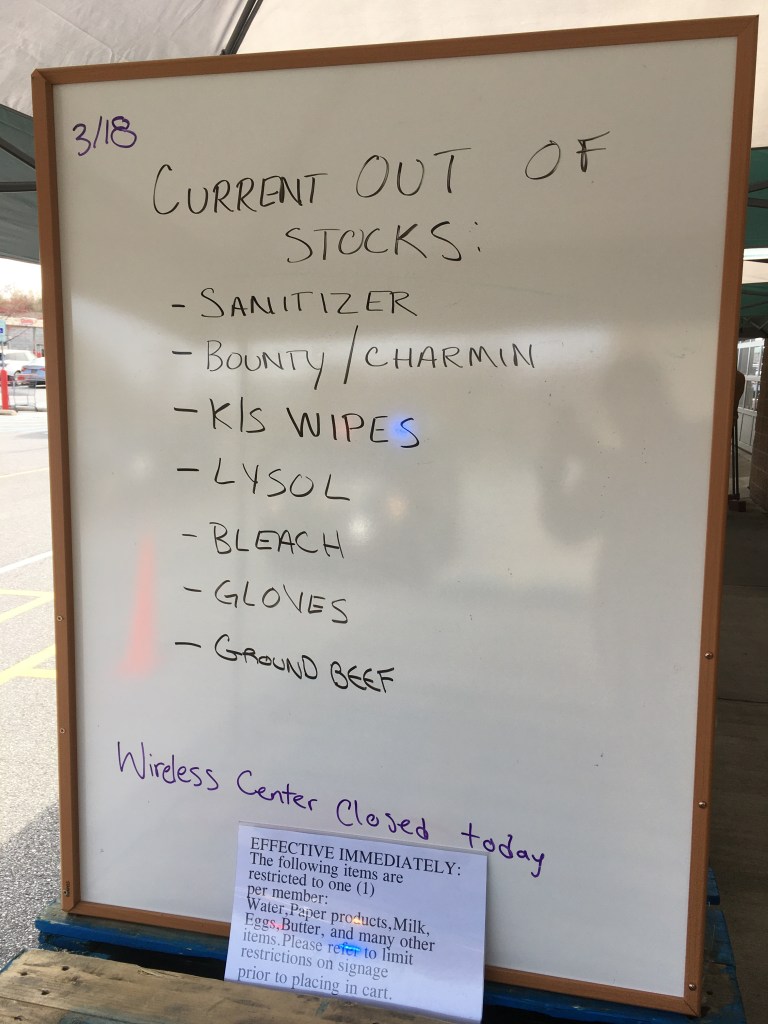 3/18
CURRENT OUT OF
STOCKS:
- SANITIZER
- BOUNTY/CHARMIN
- K|S WIPES
- LYSOL
- BLEACH
- GLOVES
- GROUND BEEF
Wireless Center Closed today
EFFECTIVE IMMEDIATELY:
The following items are
restricted to one (1)
per member:
Water,Paper products,Milk,
Eggs,Butter, and many other
items.Please refer to limit
restrictions on signage
prior to placing in cart.